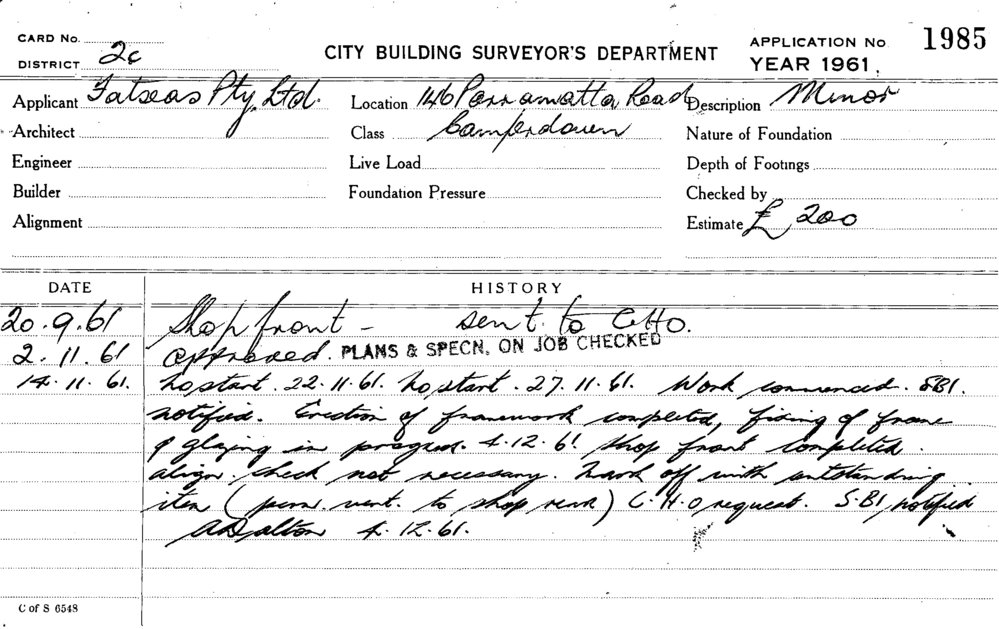 CARD No.
DISTRICT 2c
CITY BUILDING SURVEYOR'S DEPARTMENT
APPLICATION No. 1985
YEAR 1961.
Applicant Fatseas Pty. Ltd. Location 146 Parramatta Road Description Minor
Architect Class Camperdown Nature of Foundation
Engineer Live Load Depth of Footings
Builder Foundation Pressure Checked by
Alignment Estimate £ 200
DATE HISTORY
20.9.61 Shop front - sent to CHO.
2.11.61 approved. PLANS & SPECN. ON JOB CHECKED
14.11.61. No start. 22.11.61. No start. 27.11.61. Work commenced. SBI.
notified. Erection of framework completed, fixing of frame
& glazing in progress. 4.12.61 Shop front completed.
align. check not necessary. Mark off with outstanding
item (perm. vent. to shop rear) C.H.O request. S.BI, notified
4.12.61.
C of S 6548